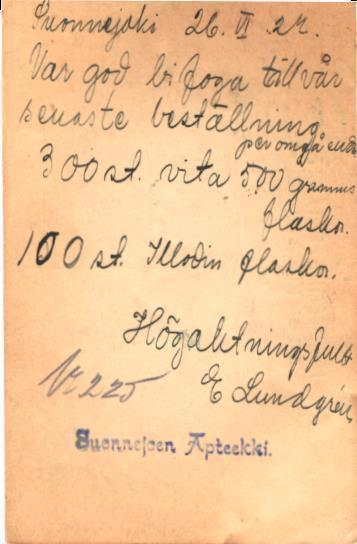 Suonnejoki 26. VI. 27.
Var god bifoga till vår
senaste beställning
per omgående
300 st. vita 500 gramms
flaskor.
100 st. Illodin flaskor.
Högaktningsfullt
E Lundgrén
Nr 225
Suonnejoen Apteekki.